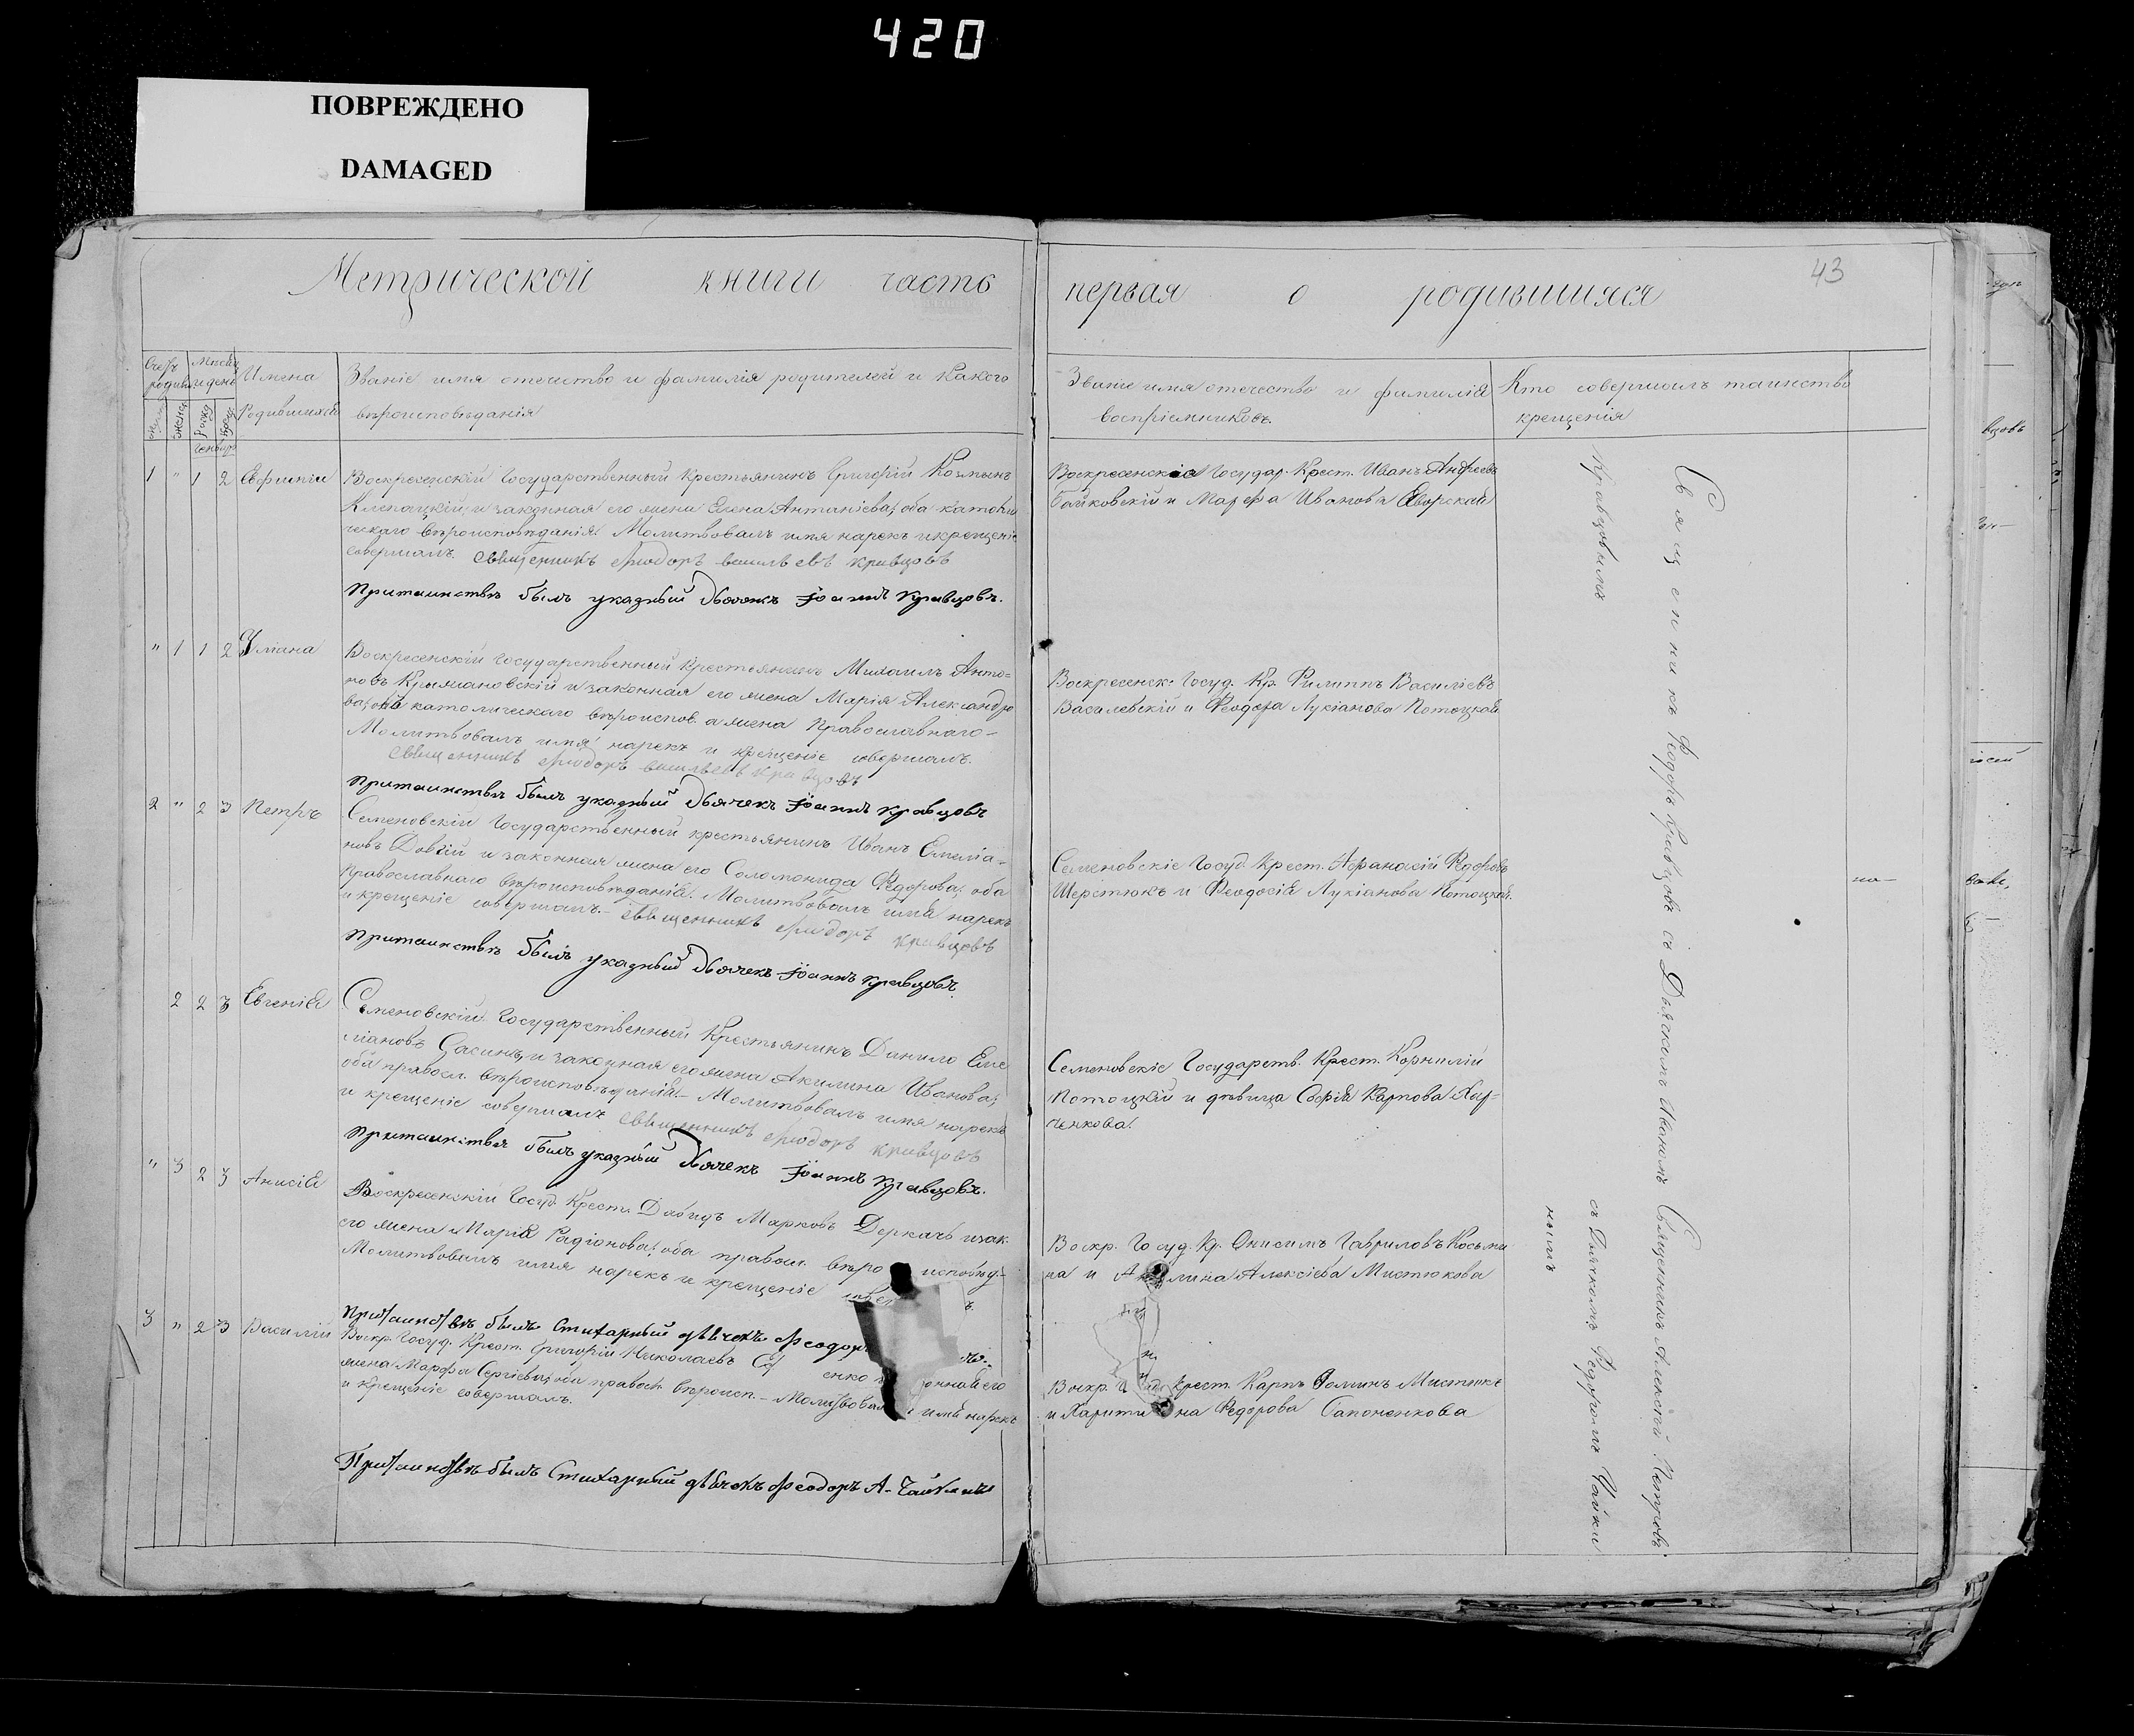 420
ПОВРЕЖДЕНО
DAMAGED
Метрической книги часть
первая о родившихся
43
Имена
Родившихся
Званіе имя отечество и фамилія родителей и какого
вѣроисповѣданія
Званіе имя отечество и фамилія
воспріемниковъ.
Кто совершилъ таинство
крещенія
1 " 1 2 Евфимій
Воскресенскій Государственный Крестьянинъ Григорій
и законная его жена Елена Антаніева, оба католи
ческаго вѣроисповѣданія. Молитвовалъ имя нарекъ и крещеніе
совершалъ. священникъ Ѳиодоръ васильевъ кривцовъ
Притаинствѣ былъ указный Дьячекъ Іоаннъ Кравцовъ.
Воскресенскіе Государ. Крест. Иванъ Андреевъ
Байковскій и Марфа Иванова Яворская
" 1 1 2 Уліана
Воскресенскій Государственный Крестьянинъ Михаилъ Анто=
новъ Крыжановскій и законная его жена Марія Александро
ва, онъ католическаго вѣроиспов. а жена Православнаго-
Молитвовалъ имя нарекъ и крещеніе совершалъ.
священникъ Ѳиодоръ васильевъ кривцовъ
Притаинствѣ былъ указный Дьячекъ Іоаннъ Кравцовъ
Воскресенск. Госуд. Кр. Филиппъ Василіевъ
Василевскій и Ѳеодора Лукіанова Потоцкая
2 " 2 3 Петръ
Семеновскій Государственный крестьянинъ Иванъ Емелiа=
новъ Довгій и законная жена его Соломонида Ѳедорова, оба
Православнаго вѣроисповѣданія. Молитвовалъ имя нарекъ
и крещеніе совершалъ.- священникъ Ѳиодоръ кривцовъ
Притаинствѣ былъ указный Дьячекъ Іоаннъ Кравцовъ.
Семеновскіе Госуд. Крест. Афанасій Ѳедоровъ
Шерстюкъ и Ѳеодосія Лукіанова Потоцкая.
2 2 3 Евгенія
Семеновскій Государственный Крестьянинъ Данило Еме
ліановъ и законная его жена Акилина Иванова,
оба правосл. вѣроисповѣданія.- Молитвовалъ имя нарекъ
и крещеніе совершалъ священникъ Ѳиодоръ кривцовъ
Притаинствѣ былъ указный Дьячекъ Іоаннъ Кравцовъ.
Семеновскіе Государств. Крест. Корнилій
Потоцкій и дѣвица Софія Карпова Хар=
ченкова.
" 3 2 3 Анисія
Воскресенскій Госуд. Крест. Давидъ Марковъ Деркачъ и зак.
его жена Марія Радіонова, оба правосл. вѣро исповѣд.-
Молитвовалъ имя нарекъ и крещеніе
Притаинствѣ былъ Стихарный дьячокъ Ѳеодоръ
Воскр. Госуд. Кр. Онисимъ Гавриловъ Козьми
на и Алексіева Мистюкова
3 " 2 3 Василій
Воскр. Госуд. Крест. Григорій Николаевъ
жена Марфа Сергіева, оба правосл. вѣроисп.- имя нарекъ
и крещеніе совершалъ.
Притаинствѣ былъ Стихарный дьячокъ Ѳеодоръ А. Чайкинъ
Воскр. Крест. Карпъ Фоминъ Мистюкъ
и Харити на Ѳедорова Сапоненкова
Священникъ Ѳеодоръ Кравцовъ съ Дьячкомъ Иваномъ
Кравцовымъ
Священникъ Алексѣй Петровъ
съ Дьячкомъ Ѳедоромъ Чайки
нымъ